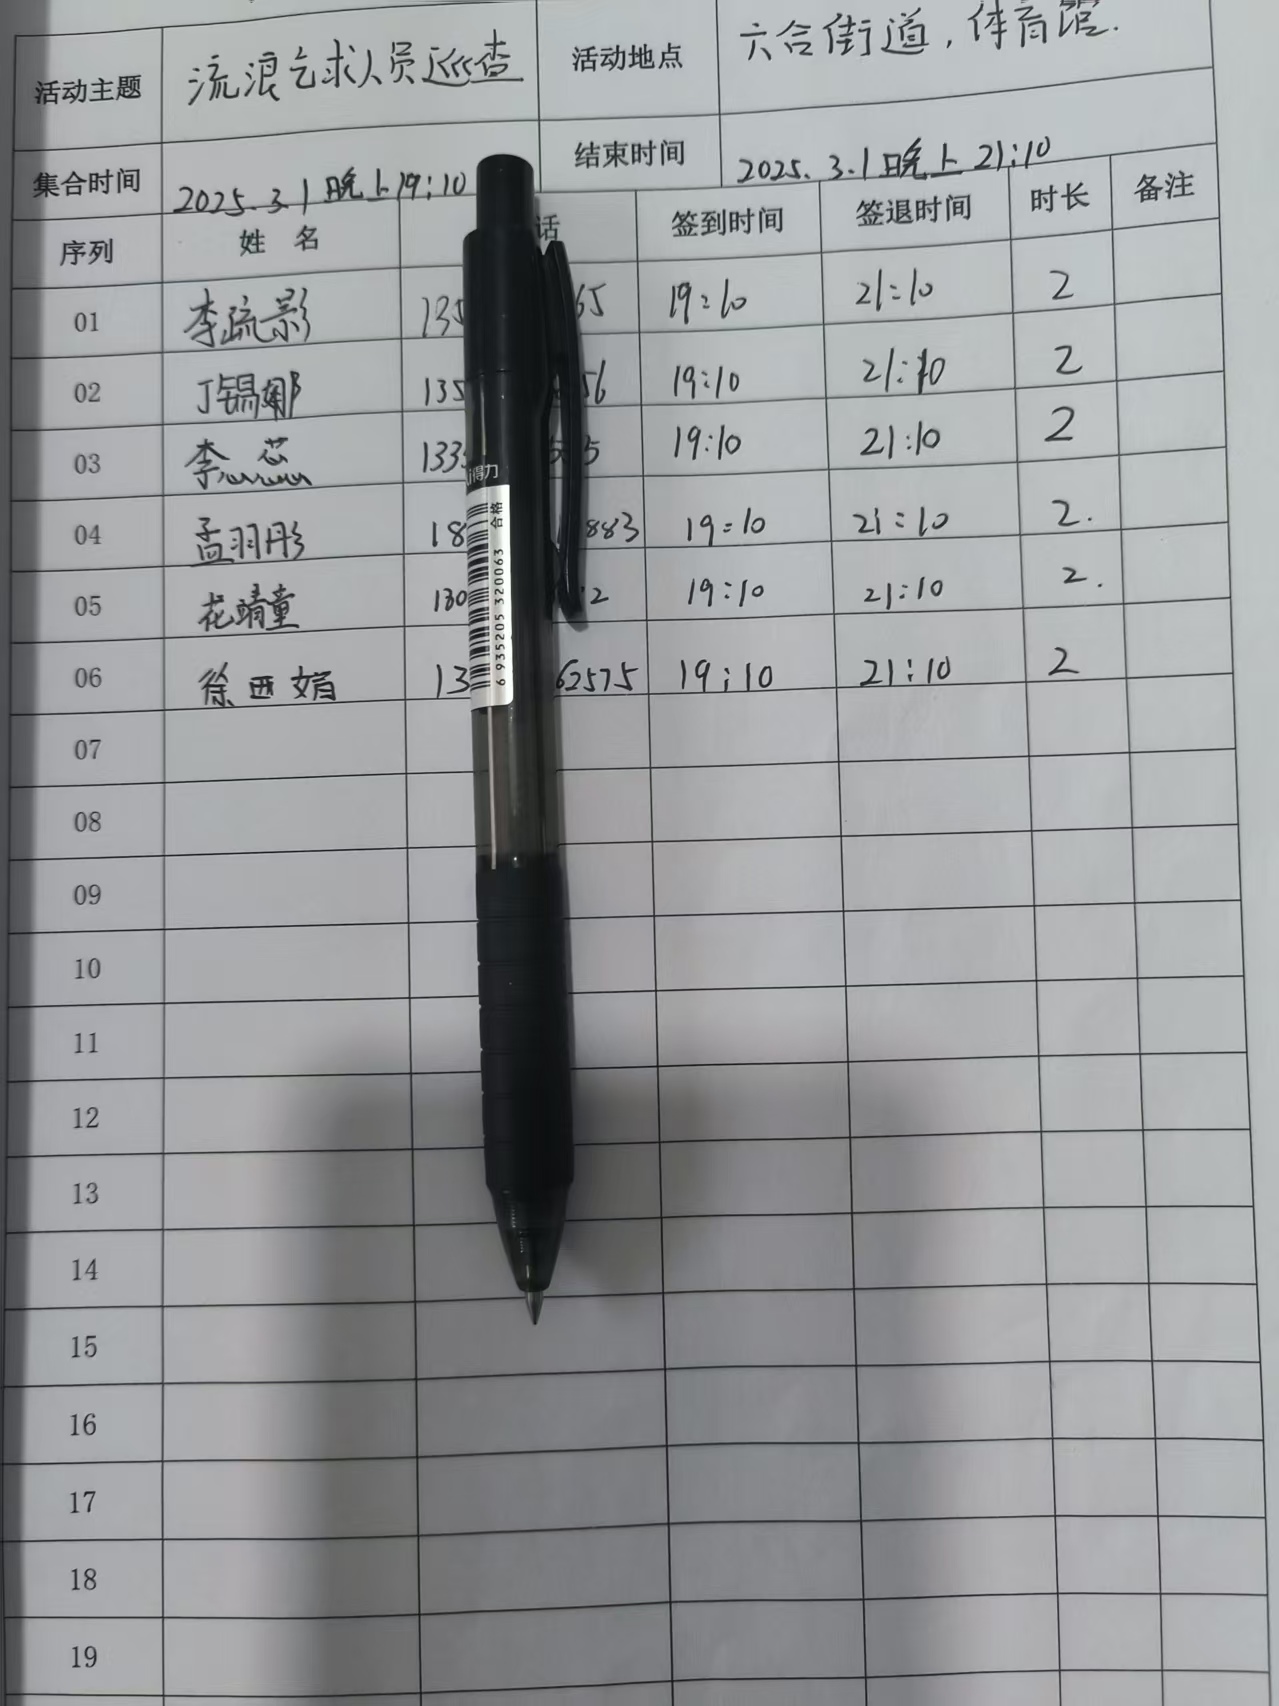 活动主题 流浪乞求人员巡查 活动地点 六合街道，体育馆.
集合时间 2025.3.1晚上19:10 结束时间 2025.3.1晚上21:10
序列 姓 名 话 签到时间 签退时间 时长 备注
01 李疏影 135 65 19:10 21:10 2
02 丁锡娜 135 56 19:10 21:10 2
03 李蕊 133 5 19:10 21:10 2
04 孟羽彤 18 883 19:10 21:10 2.
05 花靖童 180 2 19:10 21:10 2.
06 徐西文娟 13 62575 19:10 21:10 2
07
08
09
10
11
12
13
14
15
16
17
18
19
得力
合格
6 935205 320063